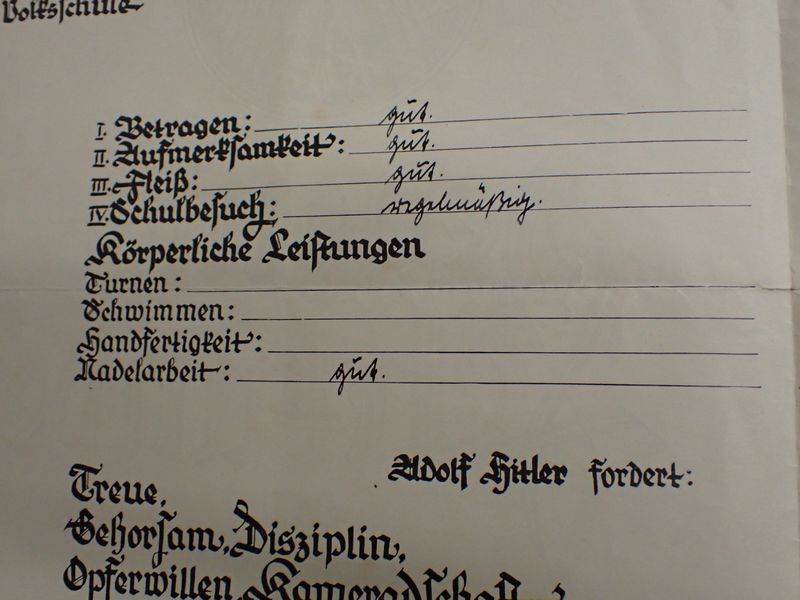 Volksschule
I. Betragen: gut.
II. Aufmerksamkeit: gut.
III. Fleiß: gut.
IV. Schulbesuch: regelmäßig.
Körperliche Leistungen
Turnen:
Schwimmen:
Handfertigkeit:
Nadelarbeit: gut.
Adolf Hitler fordert:
Treue,
Gehorsam, Disziplin,
Opferwillen, Kameradschaft